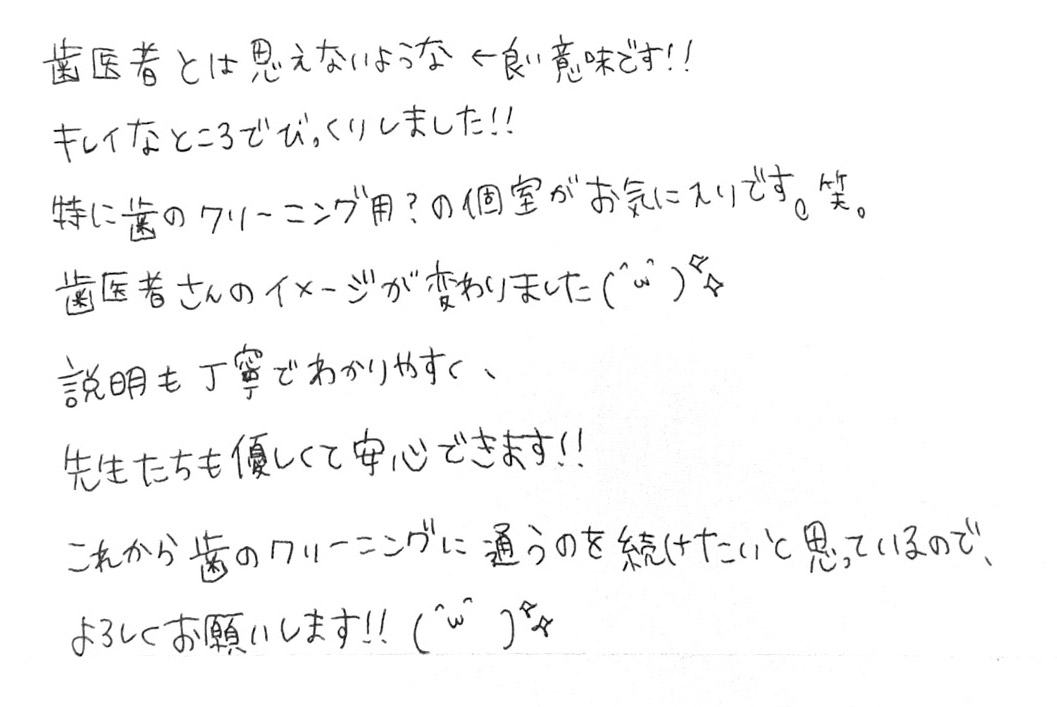 歯医者とは思えないような ←良い意味です!!
キレイなところでびっくりしました!!
特に歯のクリーニング用?の個室がお気に入りです。笑。
歯医者さんのイメージが変わりました(^ω^)✧✧
説明も丁寧でわかりやすく、
先生たちも優しくて安心できます!!
これから歯のクリーニングに通うのを続けたいと思っているので、
よろしくお願いします!! (^ω^)✧✧